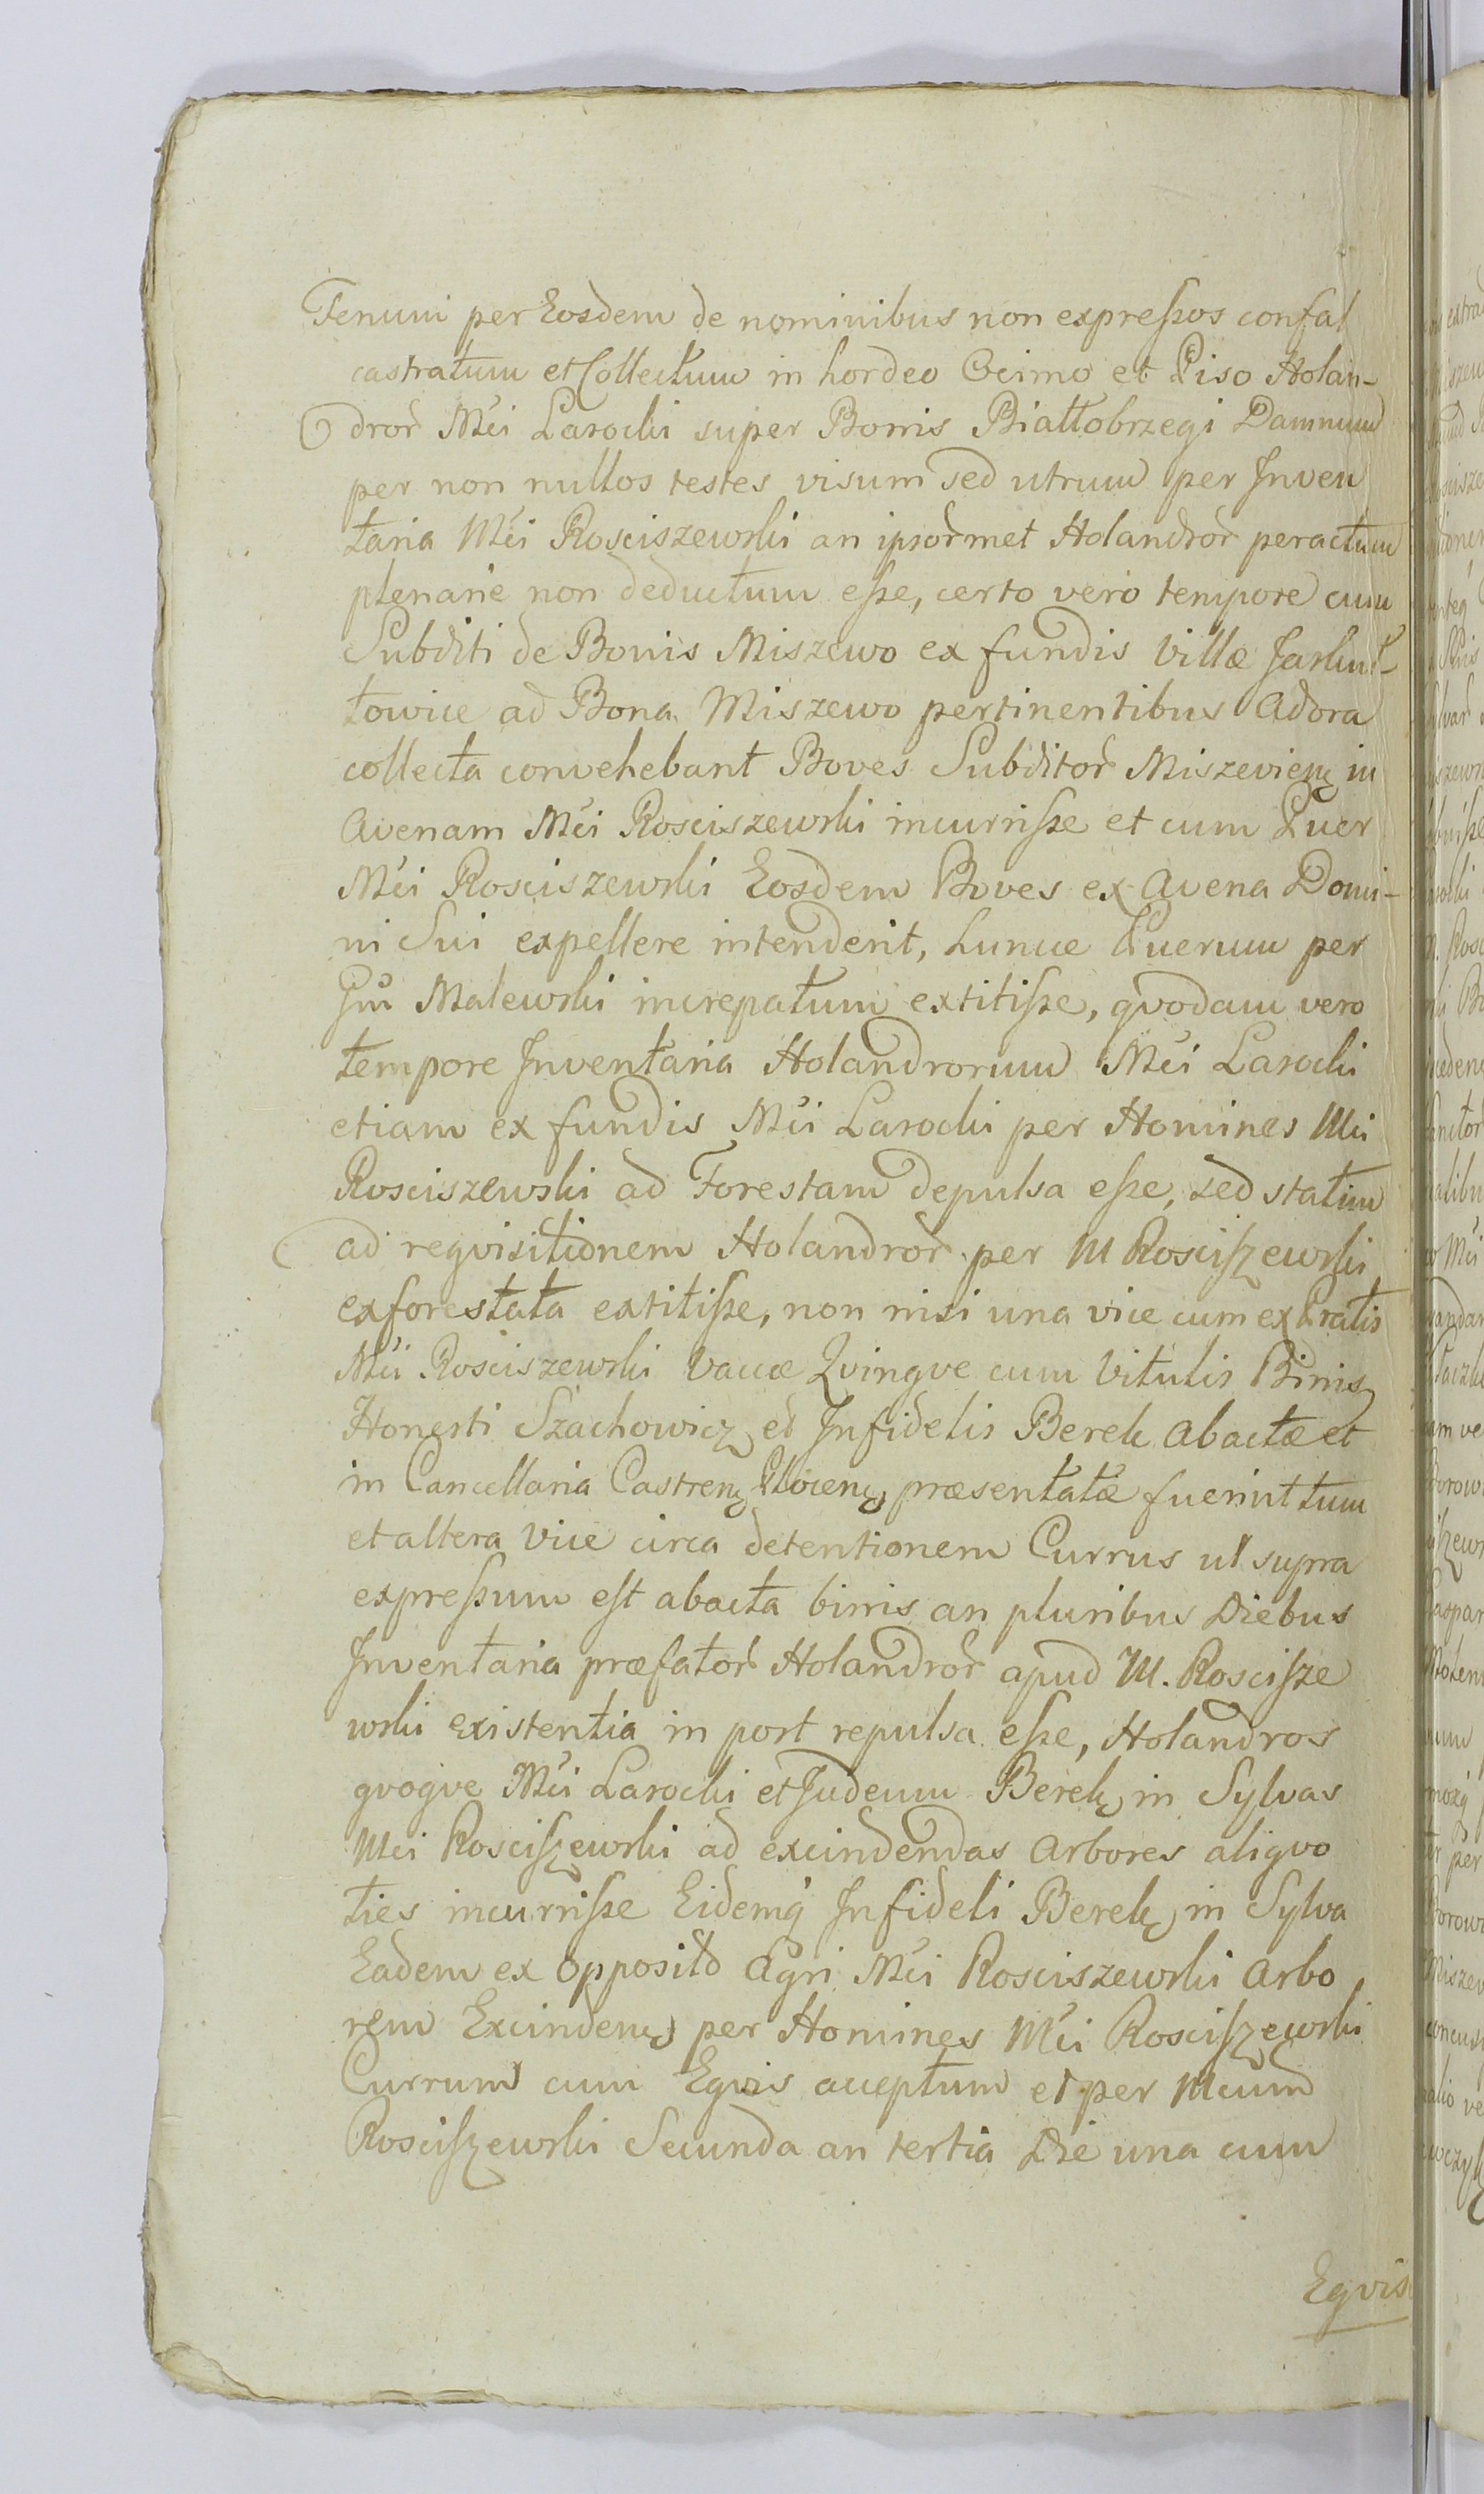 Fenum per Eosdem de nominibus non expreſsos confal
castratum et Collectum in hordeo Ocimo et Piso Holan-
dror Mci Lasocki super Bonis Białłobrzegi Damnum
per non nullos testes visum sed utrum per Inven
taria Mci Rosciszewski an ipsormet Holandror peractum
plenarie non deductum eſse, certo vero tempore cum
Subditi de Bonis Miszewo ex fundis Villæ
towice ad Bona Miszewo pertinentibus Adora
collecta convehebant Boves Subditor Miszevien in
Avenam Mci Rosciszewski incurriſse et cum Puer
Mci Rosciszewski Eosdem Boves ex Avena Domi-
ni Sui expellere intenderit, hunce Puerum per
Gm Malewski increpatum extitiſse, qvodam vero
tempore Inventaria Holandrorum Mci Lasocki
etiam ex fundis Mci Lasocki per Homines Mci
Rosciszewski ad Forestam depulsa eſse, sed statim
ad reqvisitionem Holandror per M Rosciſzewski
exforestata extitiſse, non nisi una vice cum ex Pratis
Mci Rosciszewski Vaccæ Qvingve cum Vitulis Binis
Honesti Szachowicz et Infidelis Berek Abactæ et
in Cancellaria Castren Plocen præsentatæ fuerint tum
et altera Vice circa detentionem Currus ut supra
expreſsum eſt abacta binis an pluribus Diebus
Inventaria præfator Holandror apud M. Rosciſze
wski existentia in post repulsa eſse, Holandros
qvoqve Mci Lasocki et Judeum Berek in Sylvas
Mci Rosciſzewski ad excindendas Arbores aliqvo
ties incurriſse Eidemq Infideli Berek in Sylva
Eadem ex opposito Agri Mci Rosciszewski Arbo
rem Excinden per Homines Mci Rosciſzewski
Currum cum Eqvis acceptum et per Mcum
Rosciſzewski Secunda an tertia Die una cum
Eqvis